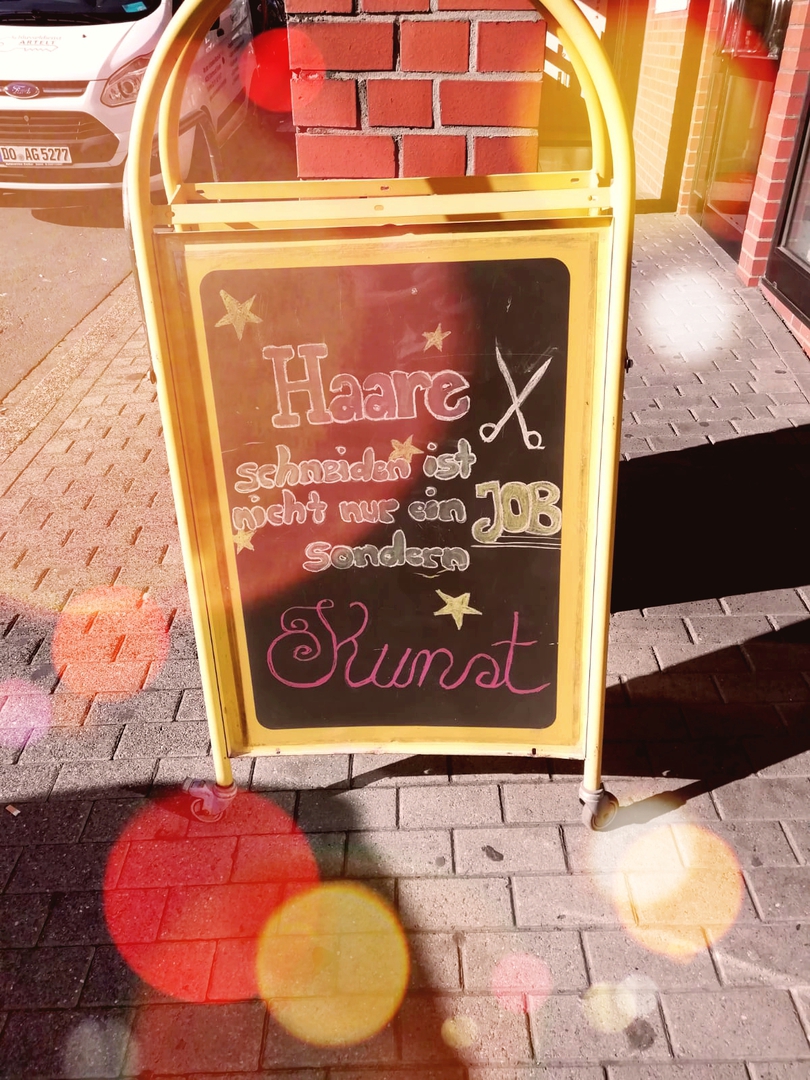 Ford
DO AG 5277
Haare
schneiden ist
nicht nur ein JOB
sondern
Kunst